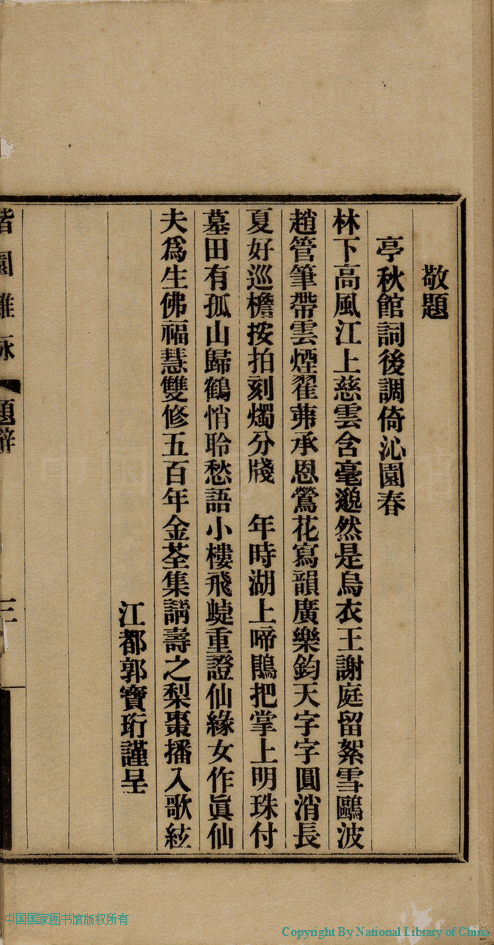 敬題
亭秋館詞後調倚沁園春
林下高風江上慈雲含毫邈然是烏衣王謝庭留絮雪鷗波
趙管筆帶雲煙翟茀承恩鶯花寫韻廣樂鈞天字字圓消長
夏好巡檐按拍刻燭分牋　年時湖上啼鵑把掌上明珠付
墓田有孤山歸鶴悄聆愁語小樓飛蜨重證仙緣女作眞仙
夫爲生佛福慧雙修五百年金荃集請壽之梨棗播入歌絃
江都郭寶珩謹呈
題辭
三
中国国家图书馆版权所有
Copyright By National Library of China